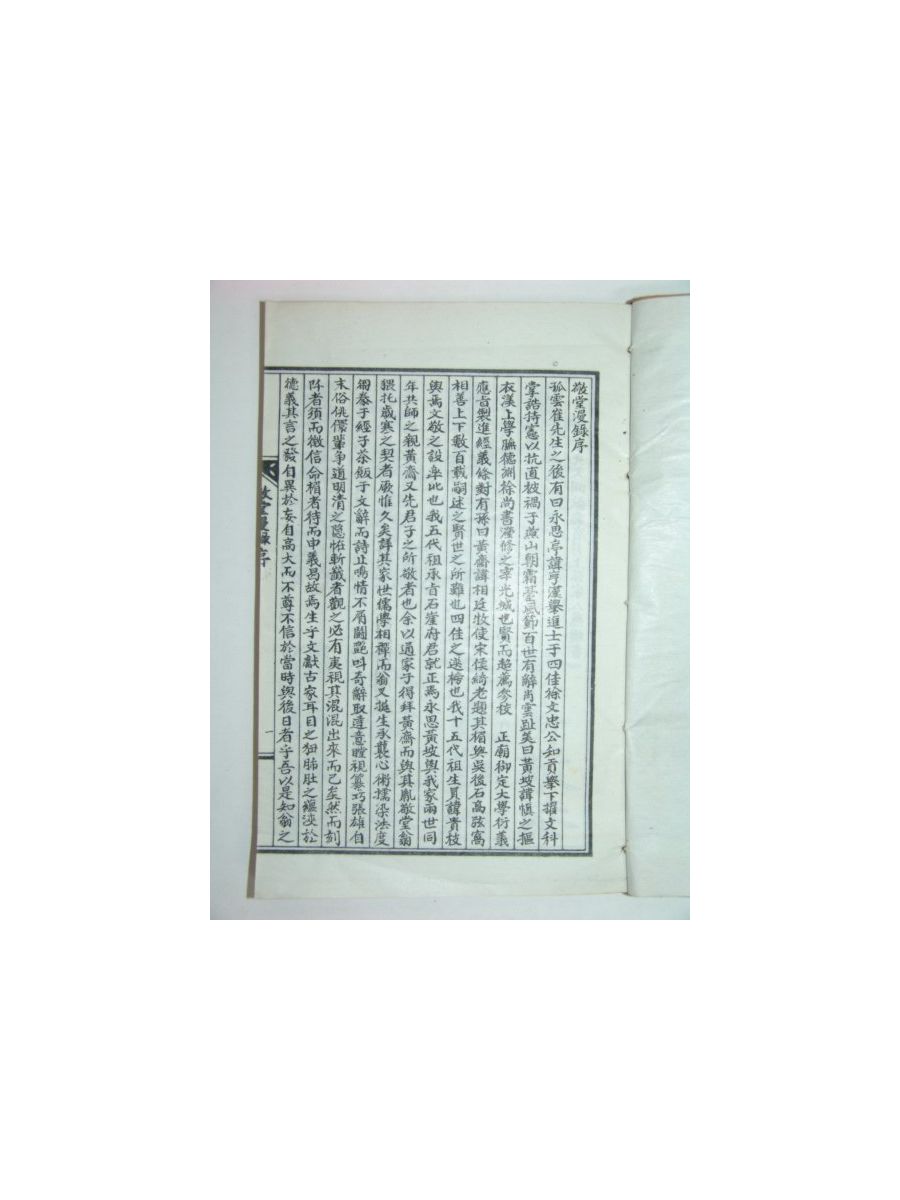 敬堂漫錄序
孤雲崔先生之後有曰永思亭諱亨漢擧進士于四佳徐文忠公知貢擧下擢文科
掌誥持憲以抗直被禍子燕山朝霜瑩風節百世有辭肖雲趾美曰黃坡諱愼之摳
衣漢上學胹德淵徐尚書瀅修之宰光城也賢而超薦參校 正廟御定大學衍義
應旨製進經義條對有孫曰黃齋諱相廷牧使宋俟綺老題其楣與吳後石高弦窩
相善上下數百載嗣述之賢世之所難也四佳之迷檜也我十五代祖生員諱貴枝
與焉文敬之設
此也我五代祖承旨石崖府君就正焉永思黃坡與我家兩世同
年共師之親黃齋又先君子之所敬者也余以通家子得拜黃齋而與其胤敬堂翁
猥托歲寒之契者厥惟久矣譯其家世儒學相禪而翁又挺生承襲心術擩染法度
芻豢于經子茶飯于文辭而詩止鳴情不屑鬪艶呌奇辭取達意瞠視纂巧張雄自
末俗侁儚輩爭道明清之隱恠斬齾者觀之必有夷視其混混出來而已矣然而刻
阡者須而徵信命楣者待而申義曷故焉生乎文獻古家耳目之狃肺肚之蘊浹於
德義其言之發自異於妄自高大而不尊不信於當時與後日者乎吾以是知翁之
敬堂漫錄序
一